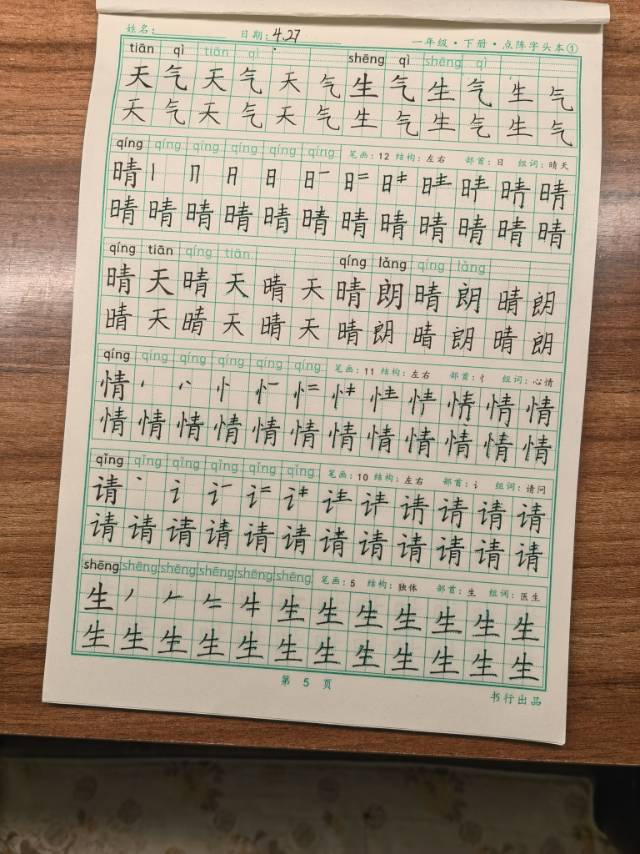 姓名： 日期：4.27 一年级·下册·点阵字头本①
tiān qì tiān qì shēng qì shēng qì
天气天气天气生气生气生气
天气天气天气生气生气生气
qíng qíng qíng qíng qíng qíng 笔画：12 结构：左右 部首：日 组词：晴天
晴丨晴晴晴
晴晴晴晴晴晴晴晴晴晴晴晴
qíng tiān qíng tiān qíng lǎng qíng lǎng
晴天晴天晴天晴朗晴朗晴朗
晴天晴天晴天晴朗晴朗晴朗
qíng qíng qíng qíng qíng qíng 笔画：11 结构：左右 部首：忄 组词：心情
情忄情情情
情情情情情情情情情情情情
qǐng qǐng qǐng qǐng qǐng qǐng 笔画：10 结构：左右 部首：讠 组词：请问
请丶讠请请请请
请请请请请请请请请请请请
shēng shēng shēng shēng shēng shēng 笔画：5 结构：独体 部首：生 组词：医生
生丿𠂉牛生生生生生生生
生生生生生生生生生生生生
第 5 页 书行出品